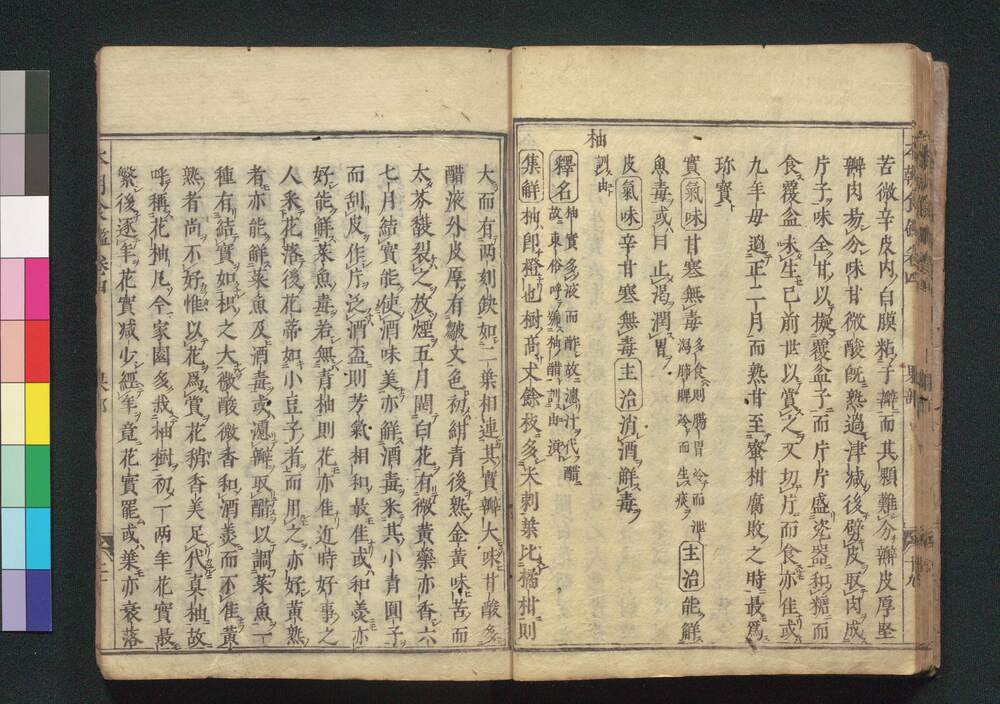 苦微辛皮内白膜粘子瓣而其顆難分瓣皮厚堅
瓣肉易分味甘微酸既熟過津減後劈皮取肉成
片子味全甘以擬覆盆子而片片盛瓷器和糖而
食覆盆未生已前世以賞之又切片而食亦佳或
九年母過正二月而熟甘至蜜柑腐敗之時最爲
珎賞
實氣味甘寒無毒多食則腸胃冷而泄瀉肺脾冷而生痰主治能鮮
魚毒或曰止渇潤胃
皮氣味辛甘寒無毒主治消酒鮮毒
柚訓由
釋名柚實多液而酢故漉汁代醋故東俗呼號柚醋訓由須
集鮮柚即橙也樹高丈餘枝多尖刺葉比橘柑則
大而有兩刻鈌如二葉相連其實瓣大味甘酸多
醋液外皮厚有皺文色初紺青後熟金黄味苦而
太芬馥裂之放煙五月開白花有微黄藥亦香六
七月結實能使酒味美亦鮮酒毒釆其小青圓子
而刮皮作片泛酒盃則芳氣相和最佳或和羮亦
好能鮮菜魚毒若無青柚則花亦佳近時好事之
人釆花落後花蒂如小豆子者而用之亦好黄熟
者亦能鮮菜魚及酒毒或漉瓣取醋以調菜魚一
種有結實如枳之大微酸微香和酒羮而不佳黄
熟者尚不好惟以花爲賞花稍香美足代真柚故
呼稱花柚凡今家園多栽柚樹初一兩年花實最
繁後逐年花實减少經年竟花實罷或葉亦衰落